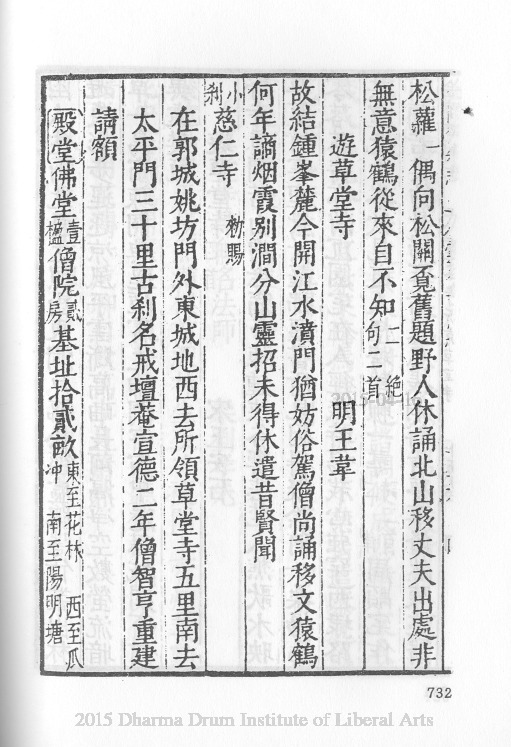 松蘿一偶向松關覓舊題野人休誦北山移丈夫出處非
無意猿鶴從來自不知二絶句二首
遊草堂寺 明王韋
故結鍾峯麓今開江水濆門猶妨俗駕僧尚誦移文猿鶴
何年謫烟霞别澗分山靈招未得休遣昔賢聞
小刹慈仁寺 勑賜
在郭城姚坊門外東城地西去所領草堂寺五里南去
太平門三十里古刹名戒壇菴宣德二年僧智亨重建
請額
殿堂佛堂壹楹僧院貳房基址拾貳畝東至花林 西至瓜冲 南至陽明塘
732
2015 Dharma Drum Institute of Liberal Arts